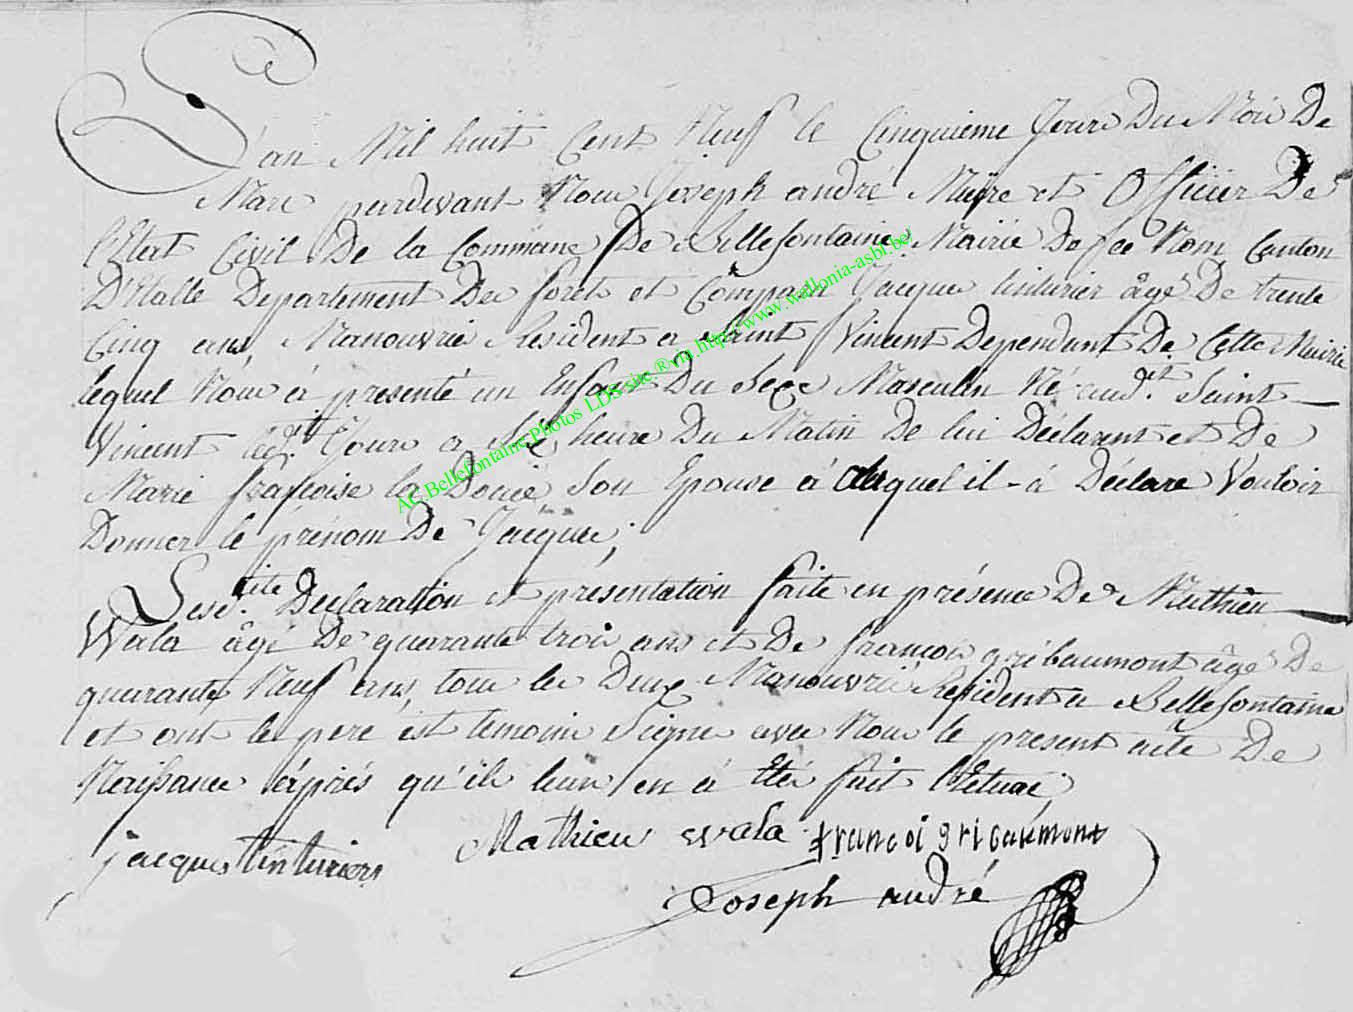 L'an Mil huit Cent Neuf le Cinquieme Jour Du Moi De
Mars pardevant Nous Joseph andré Maire et Officier De
l'Etat Civil De la Commune De Bellefontaine Mairie De ce Nom Canton
D'Etalle Departement Des forets et Comparu Jacque tinturier âgé De trente
Cinq ans, Manouvrie Resident a Saint Vincent Dependant De Cette Mairie
lequel Nous à presenté un Enfant Du Sexe Masculin Né aud.it Saint
Vincent led.it Jour a heure Du Matin De lui Déclarant et De
Marie françoise la Son Epouse é auquel il à Déclare Vouloir
Donner le prénom De Jacque;
Lesd.ite Declaration et présentation faite en présence De Mathieu
Wala âgé De quarante trois ans et De françois gribaumont âgé De
quarante Neuf ans, tous les Deux Manouvrié Resident a Bellefontaine
et ont le pere et temoins Signé avec Nous le present acte De
Naissance après qu'il leur en à Eté fait lecture
jacques tinturiers Mathieu wala francoi gribaumont
Joseph andré
AC Bellefontaine Photos LDS site ® via http://www.wallonia-asbl.be/